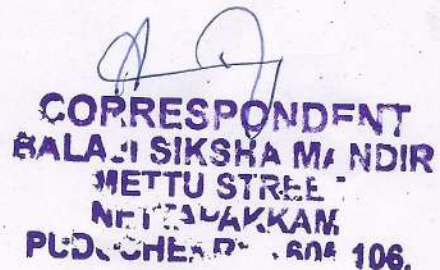 CORRESPONDENT
BALAJI SIKSHA MANDIR
METTU STREET
NETTAPAKKAM
PUDUCHERRY - 605 106.